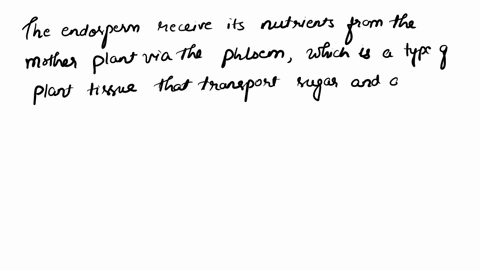 The endosperm receive its nutrients from the
mother plant via the phloem, which is a type of
plant tissue that transport sugar and o